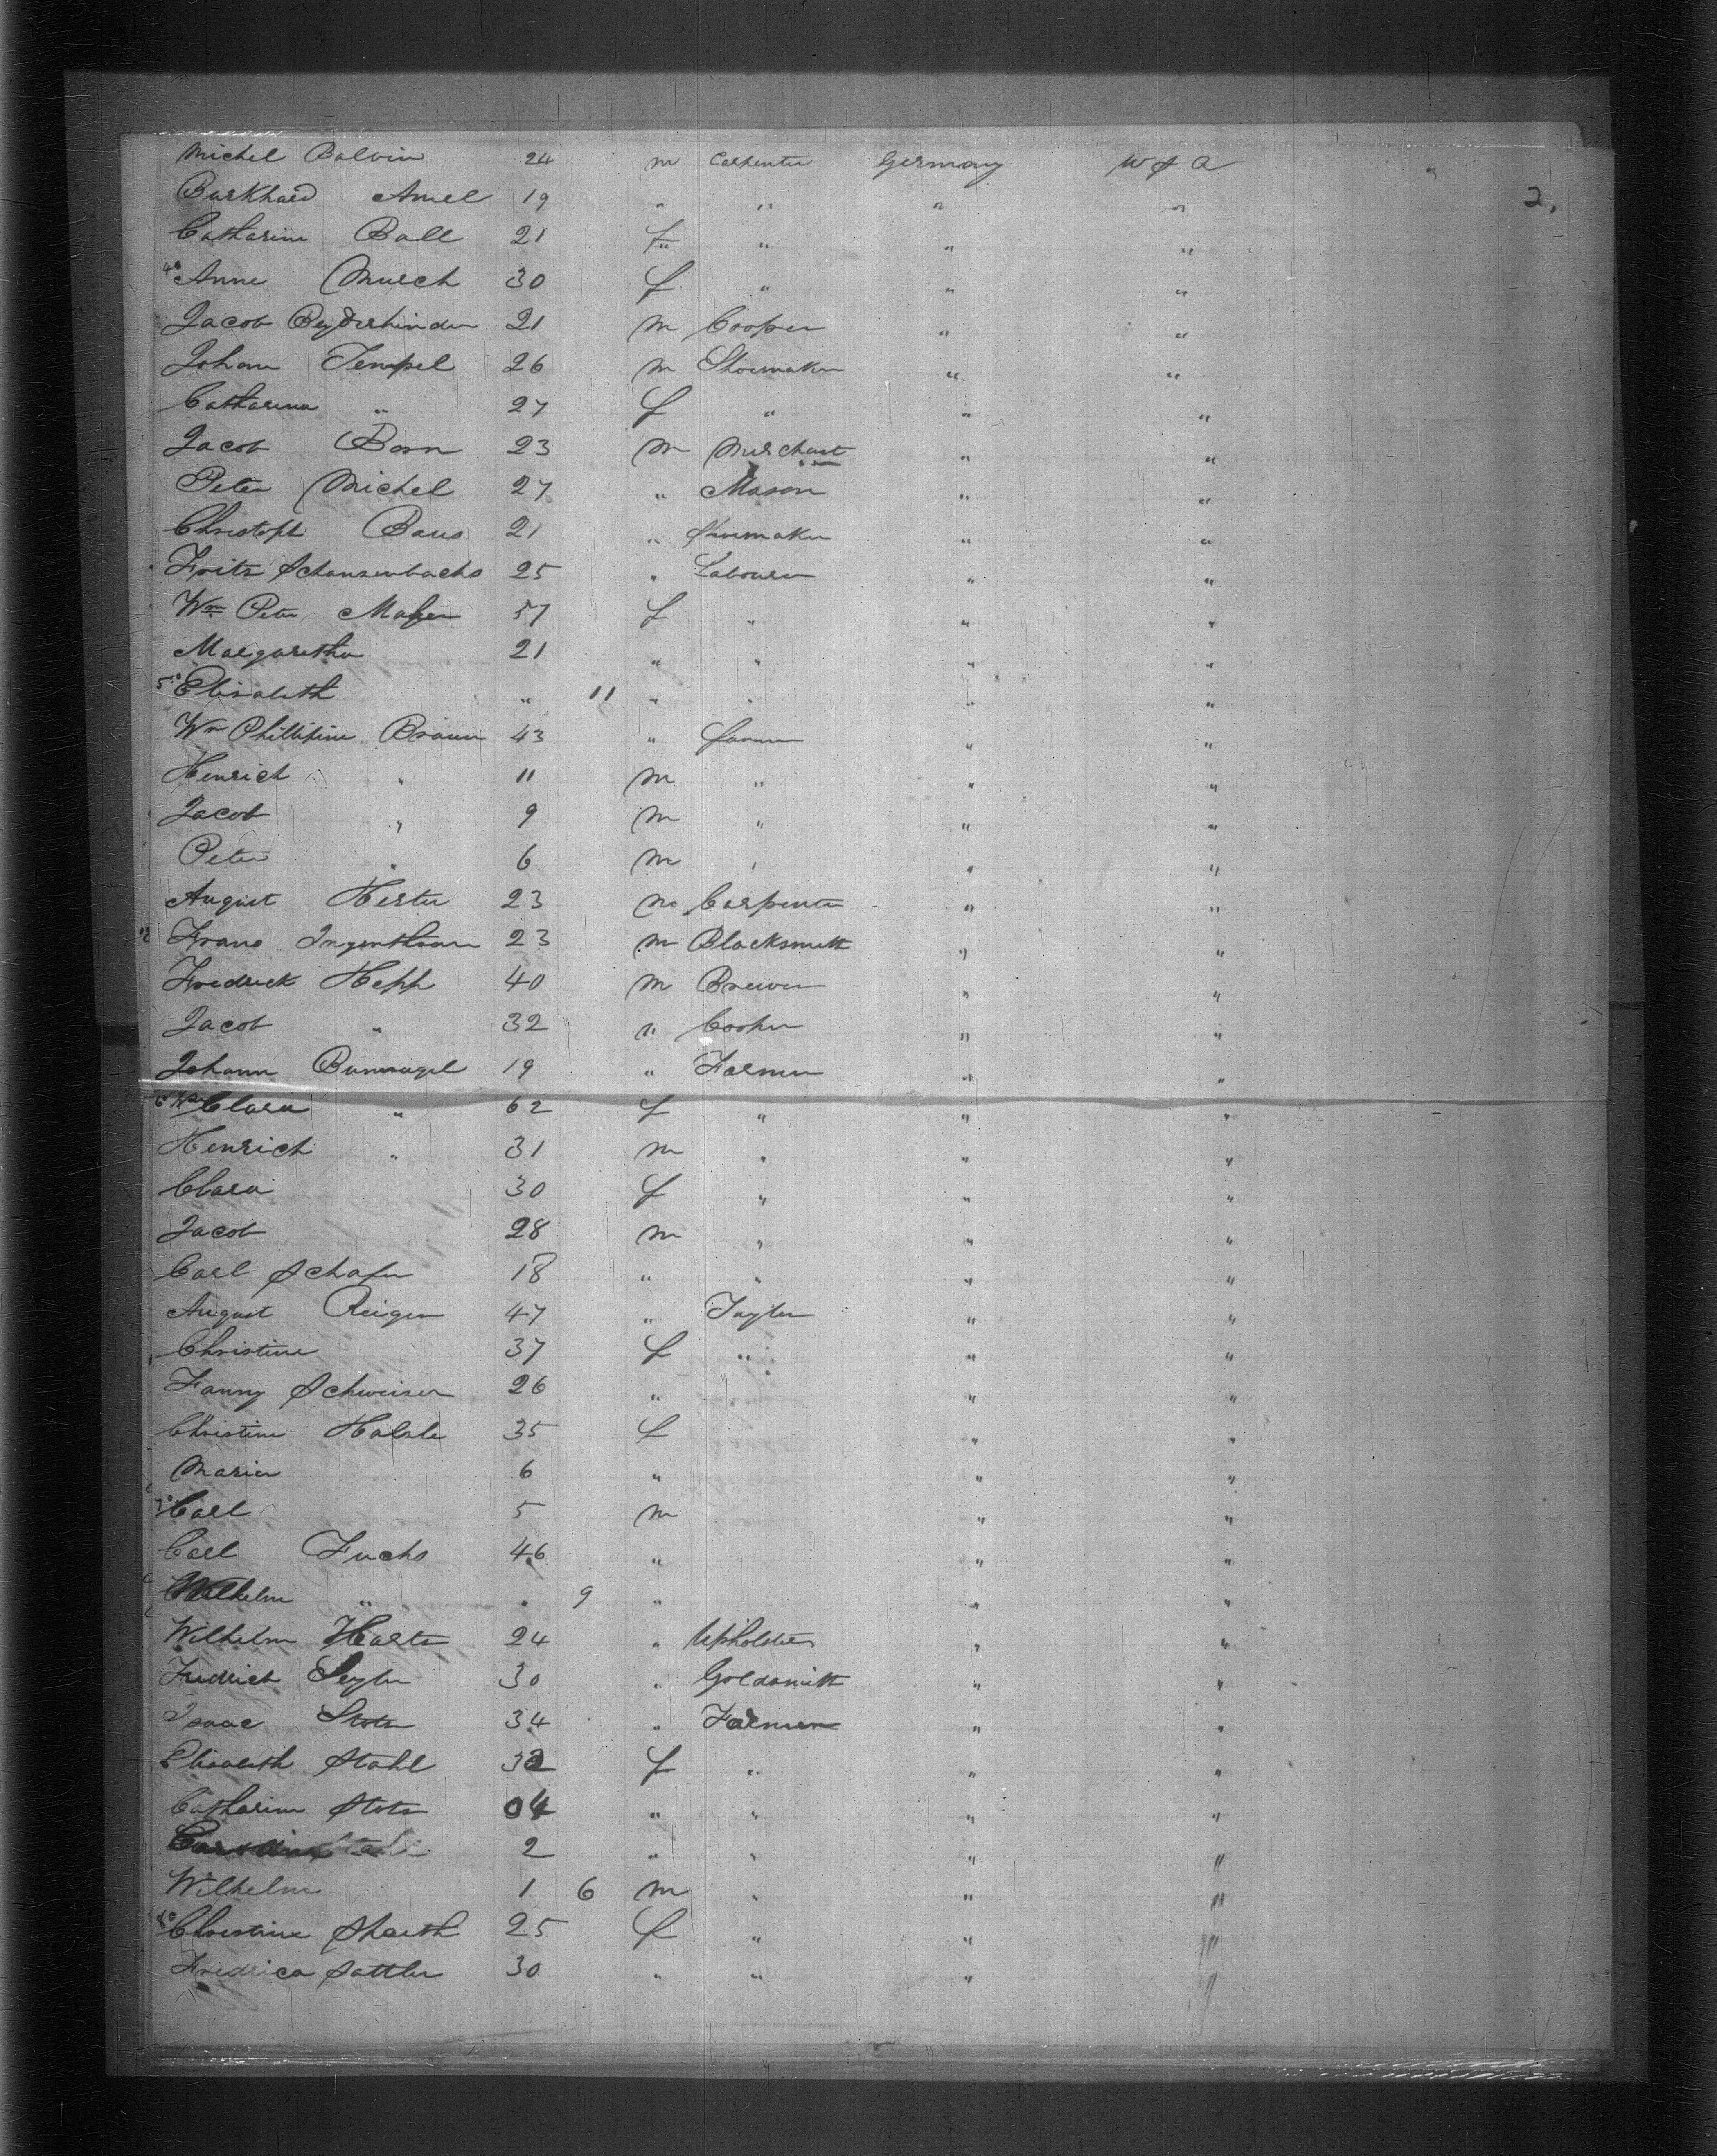 Michel Balvin 24 m Carpenter Germany U S A
2.
Burkhard Amel 19 " " " "
Catharine Ball 21 f " " "
40 Anne Mursch 30 f " " "
Jacob 21 m Cooper " "
Johann Tempel 26 m Shoemaker " "
Catharina " 27 f " " "
Jacob Born 23 m Merchant " "
Peter Michel 27 " Mason " "
Christoph Baus 21 " Shoemaker " "
Fritz 25 " Labourer " "
Wm Peter 57 f " " "
Margaretha 21 " " " "
50 Elisabeth " 11 " " " "
Wm Phillipine Braun 43 " farmer " "
Henrich " 11 m " " "
Jacob " 9 m " " "
Peter " 6 m " " "
August Herter 23 m Carpenter " "
Franz 23 m Blacksmith " "
Fredrick Hepp 40 m Brewer " "
Jacob " 32 " Cooper " "
Johann 19 " Farmer " "
Clara " 62 f " " "
Henrich " 31 m " " "
Clara 30 f " " "
Jacob 28 m " " "
Carl Schafer 18 " " " "
August Reiger 47 " Taylor " "
Christine 37 f " " "
Fanny Schweiser 26 " " "
Christine 35 f " "
Maria 6 " " "
70 Carl 5 m " "
Carl Fuchs 46 " " "
Wilhelm " " 9 " " "
Wilhelm Harts 24 " Upholster " "
Fredrich Seyler 30 " Goldsmith " "
Isaac Stots 34 " Farmer " "
Elisabeth Stahl 32 f " " "
Catharine Stots 04 " " " "
2 " " " "
Wilhelm 1 6 m " " "
80 Christine 25 f " " "
Fredrica Sattler 30 " " " "